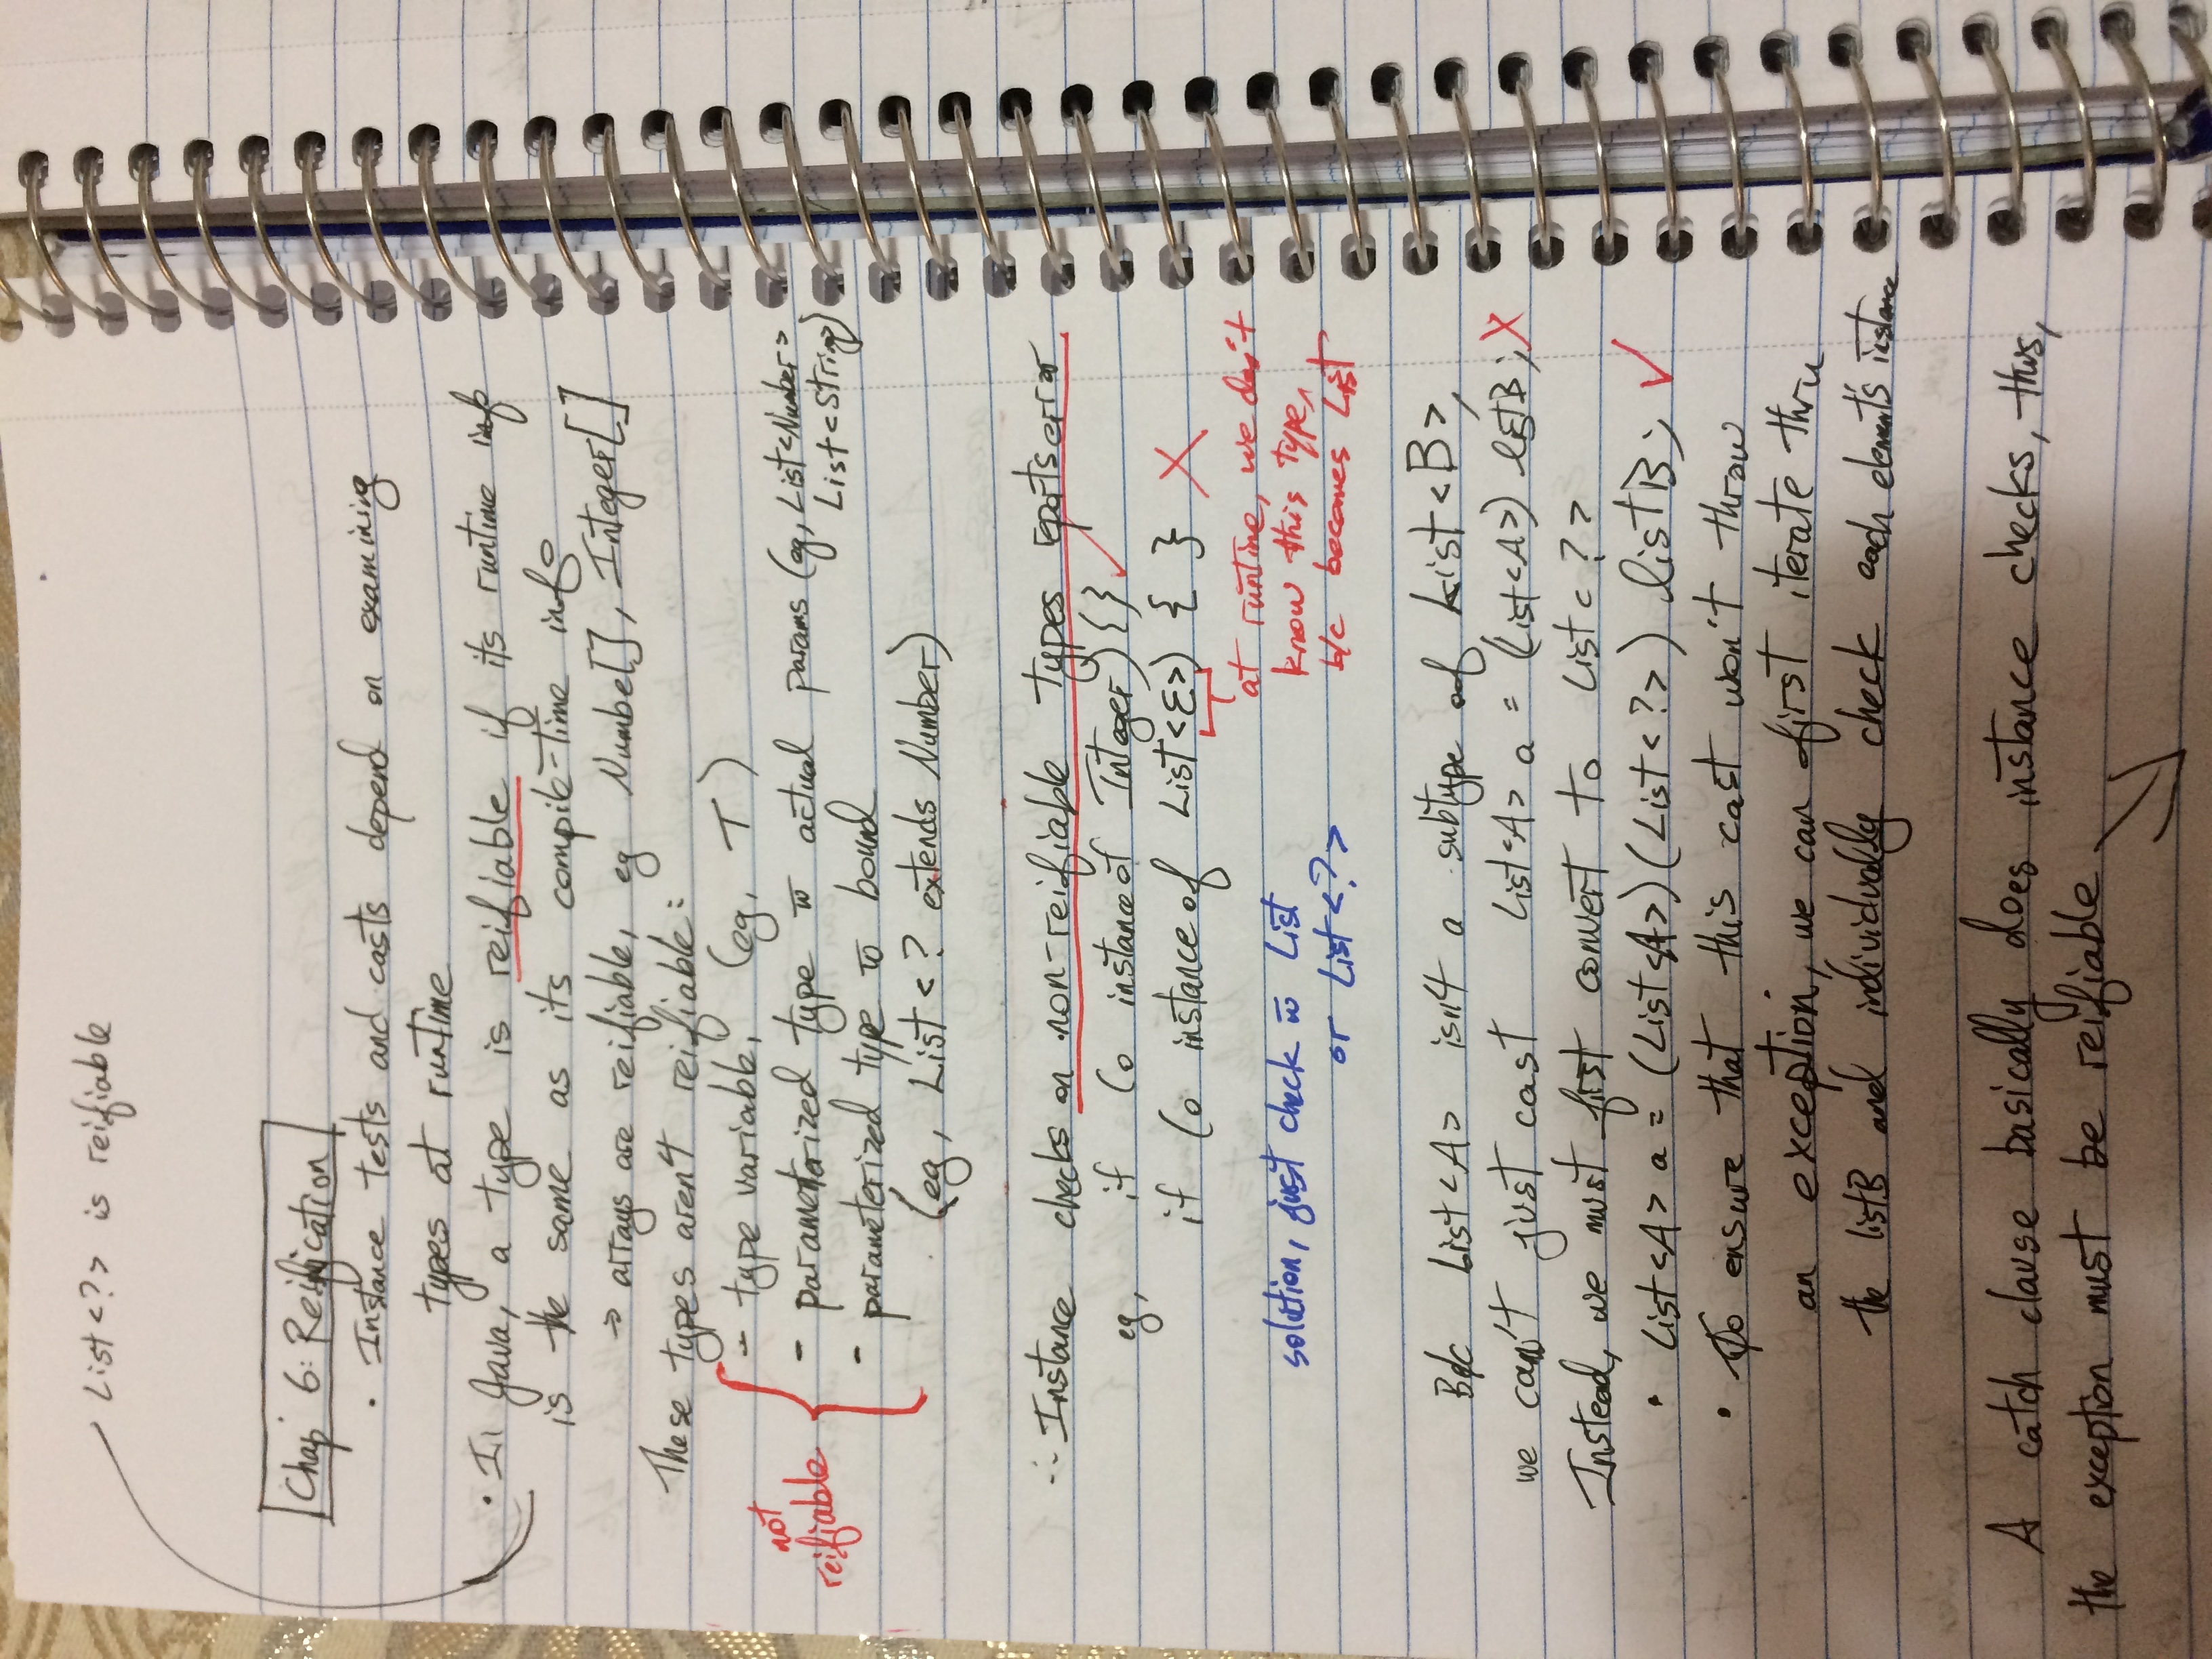 List<?> is reifiable
Chap 6: Reification
· Instance tests and casts depend on examining
types at runtime
· In Java, a type is reifiable if its runtime info
is the same as its compile-time info
→ arrays are reifiable, eg Numbe[], Integer[]
These types aren't reifiable:
not
reifiable
- type variable, (eg, T)
- parameterized type w̄ actual params (eg, List<Number>
List<String>)
- parameterized type w̄ bound
(eg, List<? extends Number)
∴ Instance checks on non-reifiable types reports error
eg, if (o instance of Integer) {} ✓
if (o instance of List<E>) { } X
at runtime, we don't
know this type,
b/c becomes List
solution, just check w̄ List
or List<?>
B/c List<A> isn't a subtype of List<B>,
we can't just cast List<A> a = (List<A>) listB; X
Instead, we must first convert to List<?>
· List<A> a = (List<A>)(List<?>) listB; ✓
· To ensure that this cast won't throw
an exception, we can first iterate thru
the listB and individually check each element's instance
A catch clause basically does instance checks, thus,
the exception must be reifiable